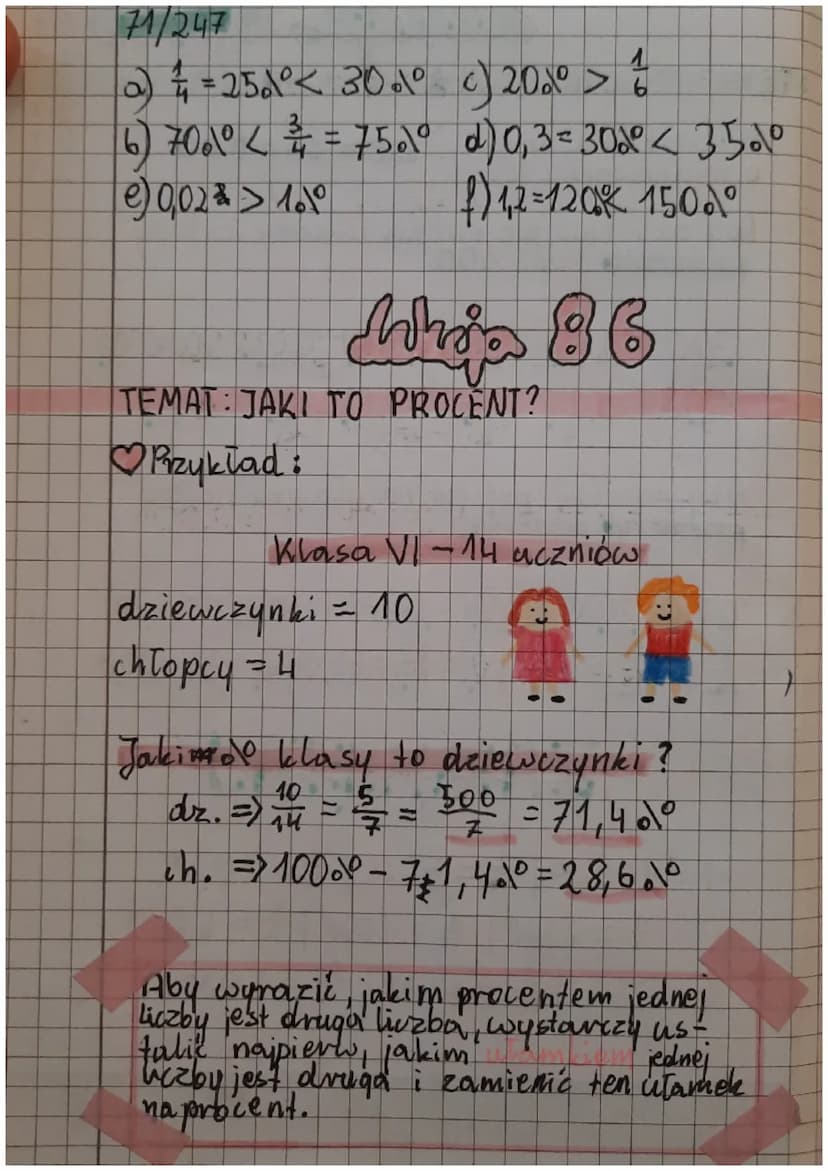 71/247
a) 1/4 = 25% < 30% c) 20% > 1/6
b) 70% < 3/4 = 75% d) 0,3 = 30% < 35%
e) 0,02 > 1% f) 1,2 = 120% < 150%
Lekcja 86
TEMAT: JAKI TO PROCENT?
Przykład:
Klasa VI - 14 uczniów
dziewczynki = 10
chłopcy = 4
Jaki % klasy to dziewczynki?
dz. => 10/14 = 5/7 = 500/7 = 71,4%
ch. => 100% - 71,4% = 28,6%
Aby wyrazić, jakim procentem jednej
liczby jest druga liczba, wystarczy us-
talić najpierw, jakim ułamkiem jednej
liczby jest druga i zamienić ten ułamek
na procent.